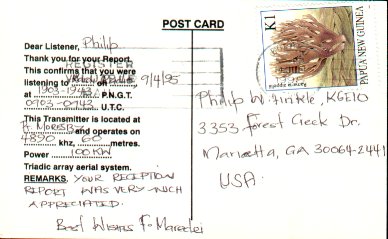 POST CARD
Dear Listener, Philip
Thank you for your Report.
This confirms that you were
listening to on 9/4/95
at 1903-1943 P.N.G.T.
0903-0943 U.T.C.
This Transmitter is located at
Pt. MORESBY and operates on
4890 khz, 60 metres.
Power 100KW
Triadic array aerial system.
REMARKS. YOUR RECEPTION
REPORT WAS VERY MUCH
APPRECIATED.
Best Wishes
K1
PAPUA NEW GUINEA
Philip W. Hinkle, KGE10
3353 Forest Creek Dr.
Marietta, GA 30064-2441
USA.